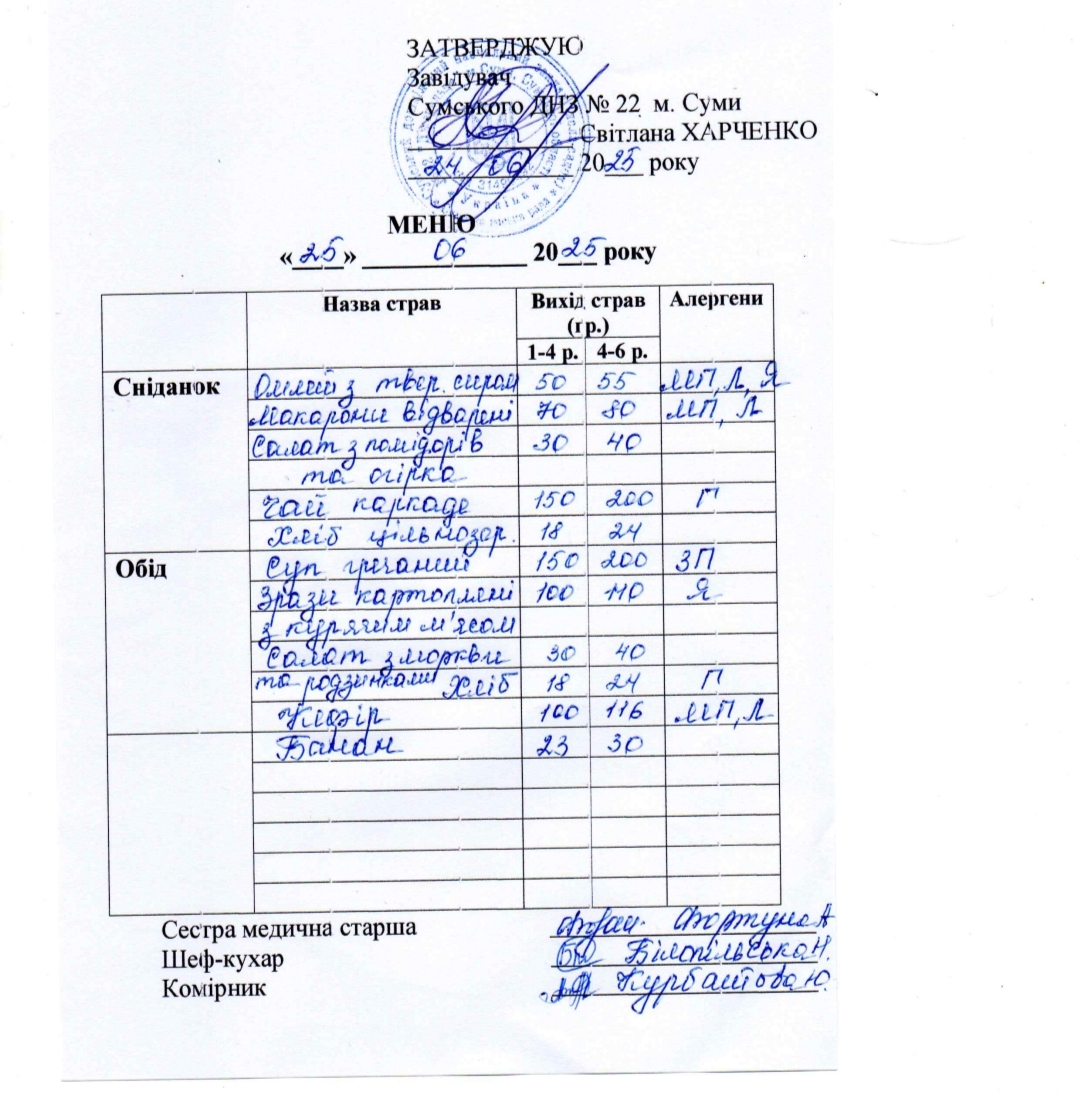 ЗАТВЕРДЖУЮ
Завідувач
Сумського ДНЗ № 22 м. Суми
Світлана ХАРЧЕНКО
24. 06 2025 року
МЕНЮ
«25» 06 2025 року
Назва страв Вихід страв (гр.) Алергени
1-4 р. 4-6 р.
Сніданок Омлет з твер. сиром 50 55 МП, Л, Я
Макарони відварені 70 80 МП, Л
Салат з помідорів 30 40
та огірка
Чай каркаде 150 200 П
Хліб цільнозер. 18 24
Обід Суп гречаний 150 200 ЗП
Зрази картопляні 100 110 Я
з курячим м'ясом
Салат з моркви 30 40
та родзинками Хліб 18 24 П
Кефір 100 116 МП, Л
Банан 23 30
Сестра медична старша Фортуна А
Шеф-кухар Білопільська Н.
Комірник Курбатова Ю.